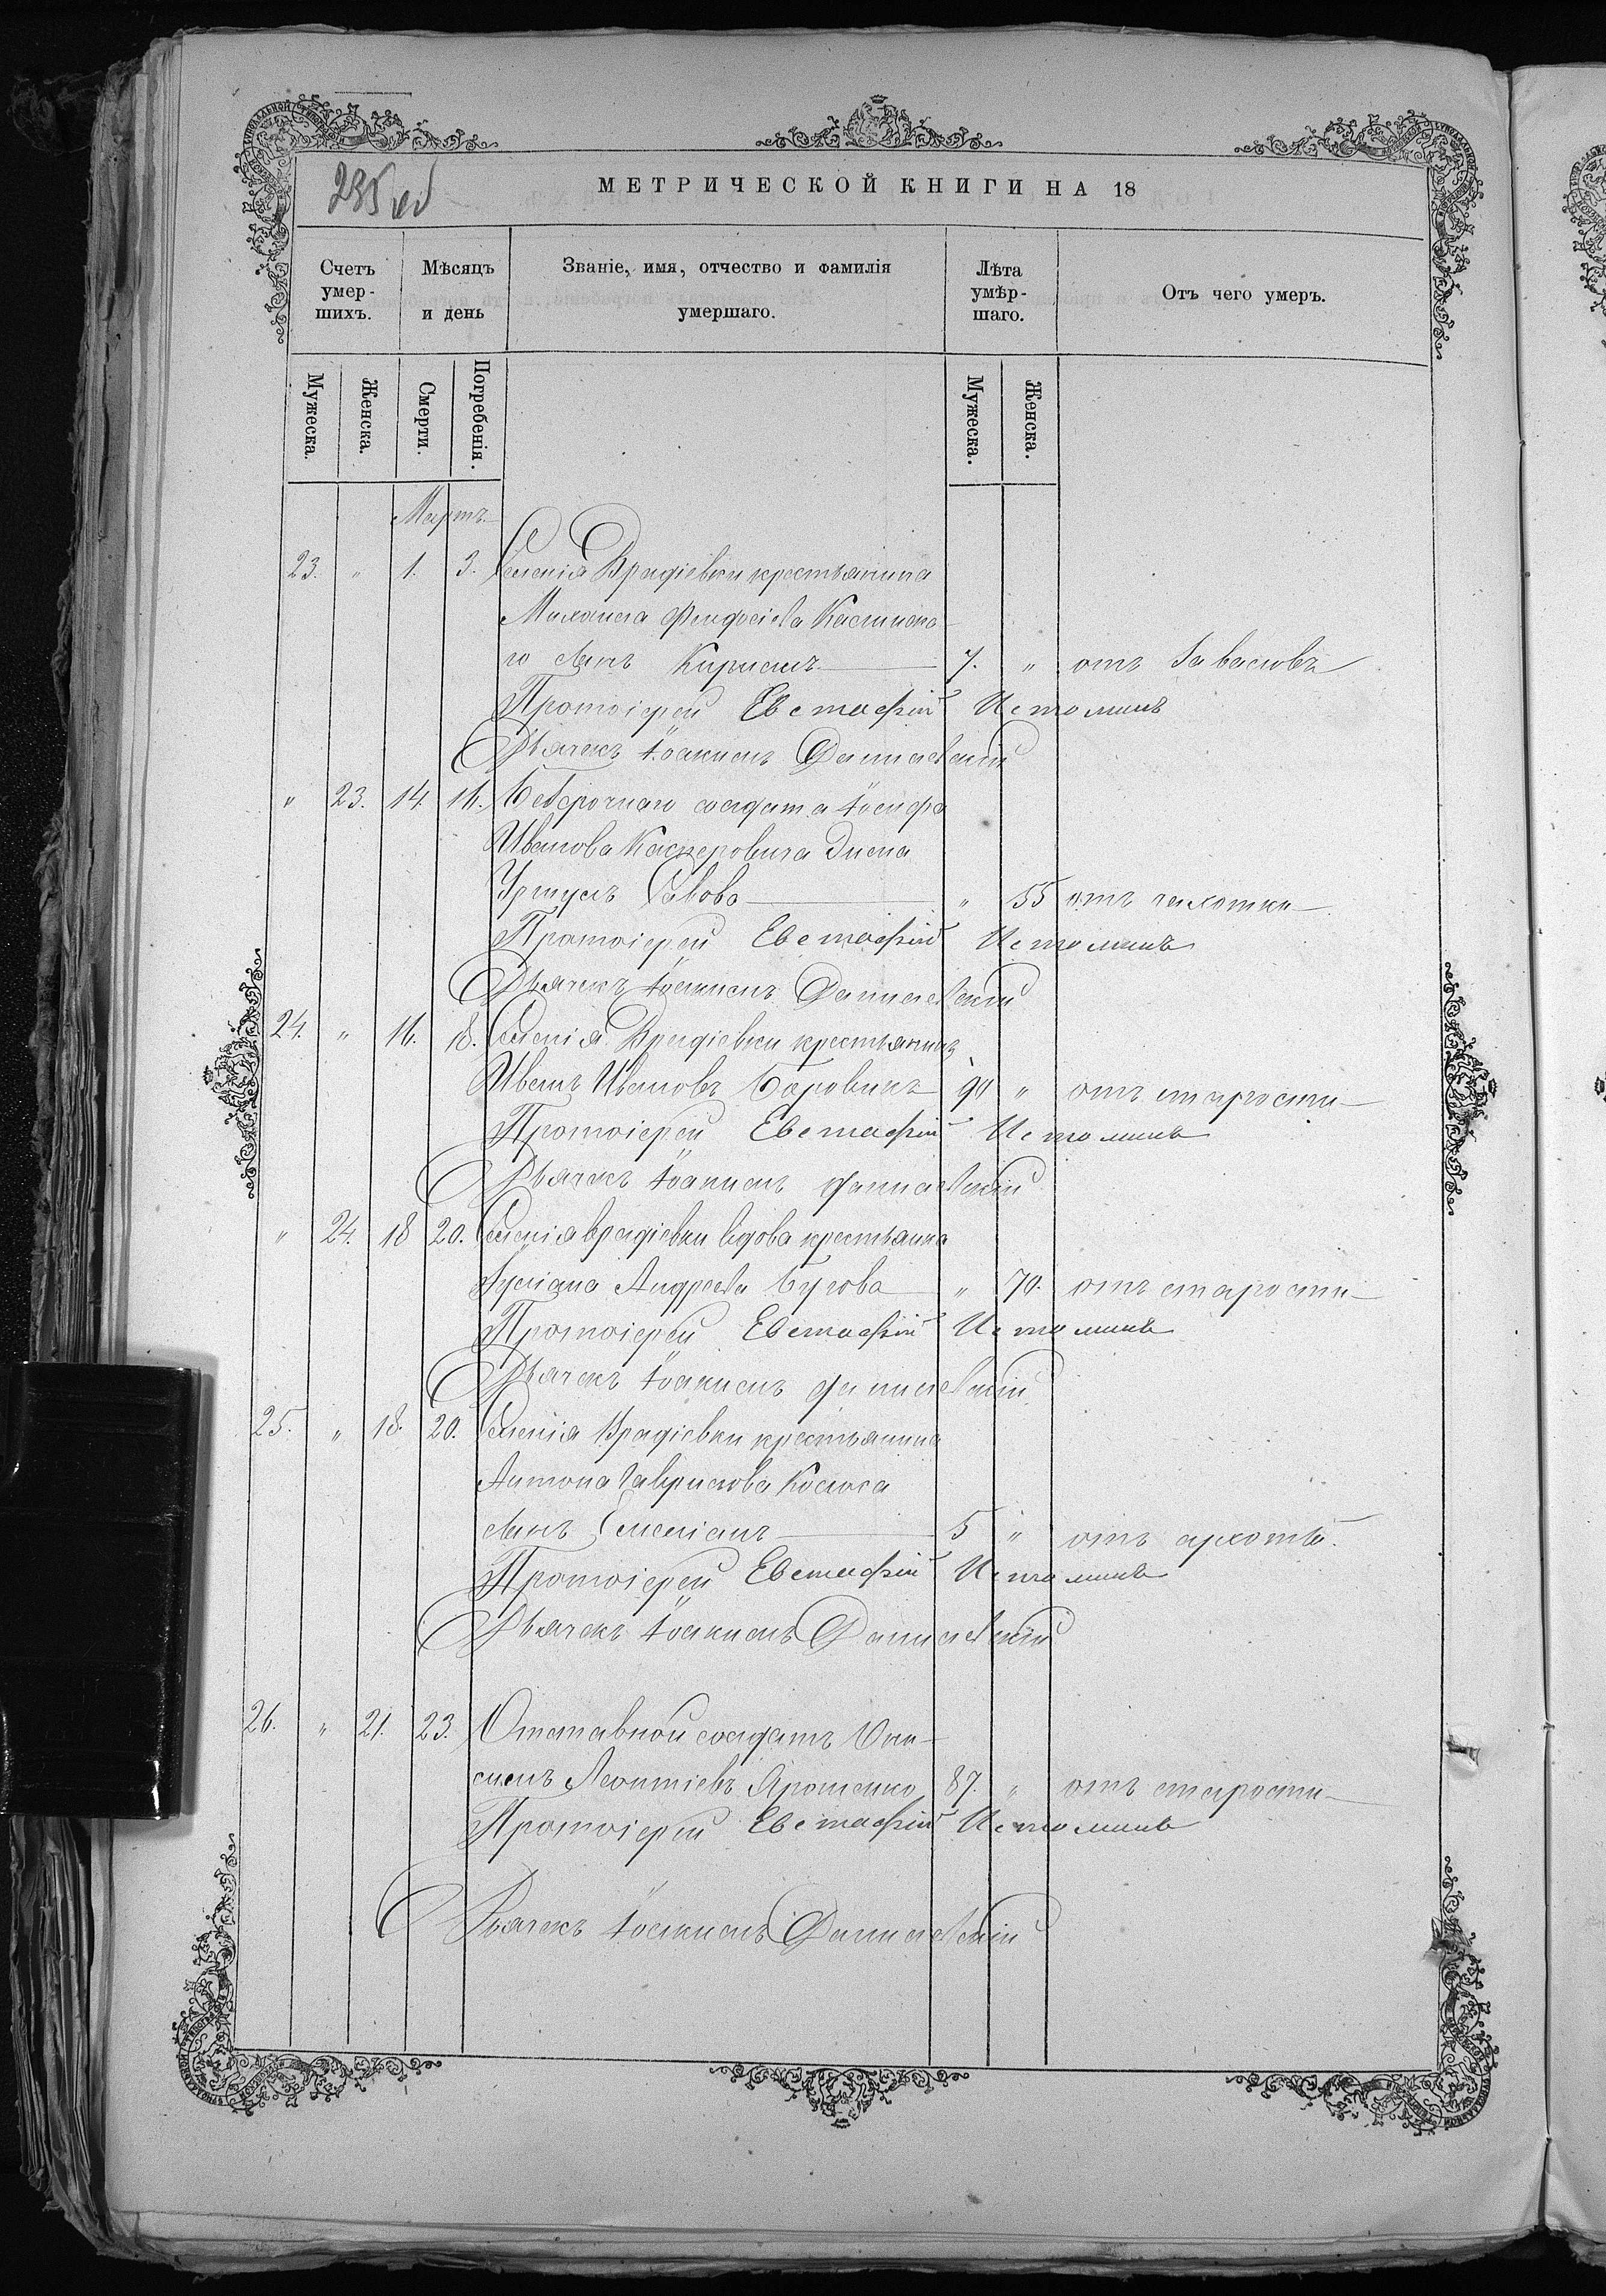 235 об
МЕТРИЧЕСКОЙ КНИГИ НА 18
Счетъ умер-шихъ.
Мѣсяцъ и день
Званіе, имя, отчество и фамилія умершаго.
Лѣта умѣр-шаго.
Отъ чего умеръ.
Мужеска.
Женска.
Смерти.
Погребенія.
Мужеска.
Женска.
Мартъ
23. " 1. 3. Селенія Врадіевки крестьянина
Михаила Феодосіева
го сынъ Кирилъ 7. " отъ
Протоіерей Евстафій Истоминъ
Дьячекъ Іоакимъ Данилевскій
" 23. 14. 16. солдата Іосифа
Иванова Касперовича жена
Савова " 55 отъ чахотки
Протоіерей Евстафій Истоминъ
Дьячекъ Іоакимъ Данилевскій
24. " 16. 18. Селенія Врадіевки крестьянинъ
Иванъ Ивановъ Боровикъ 90 " отъ старости
Протоіерей Евстафій Истоминъ
Дьячекъ Іоакимъ Данилевскій
" 24. 18 20. Селенія Врадіевки вдова крестьянка
Андреева " 70. отъ старости
Протоіерей Евстафій Истоминъ
Дьячекъ Іоакимъ Данилевскій
25. " 18. 20. Селенія Врадіевки крестьянина
Антона Гаврилова
сынъ 5 " отъ
Протоіерей Евстафій Истоминъ
Дьячекъ Іоакимъ Данилевскій
26. " 21. 23. Отставной солдатъ Они-
симъ Леонтіевъ 87. " отъ старости
Протоіерей Евстафій Истоминъ
Дьячекъ Іоакимъ Данилевскій